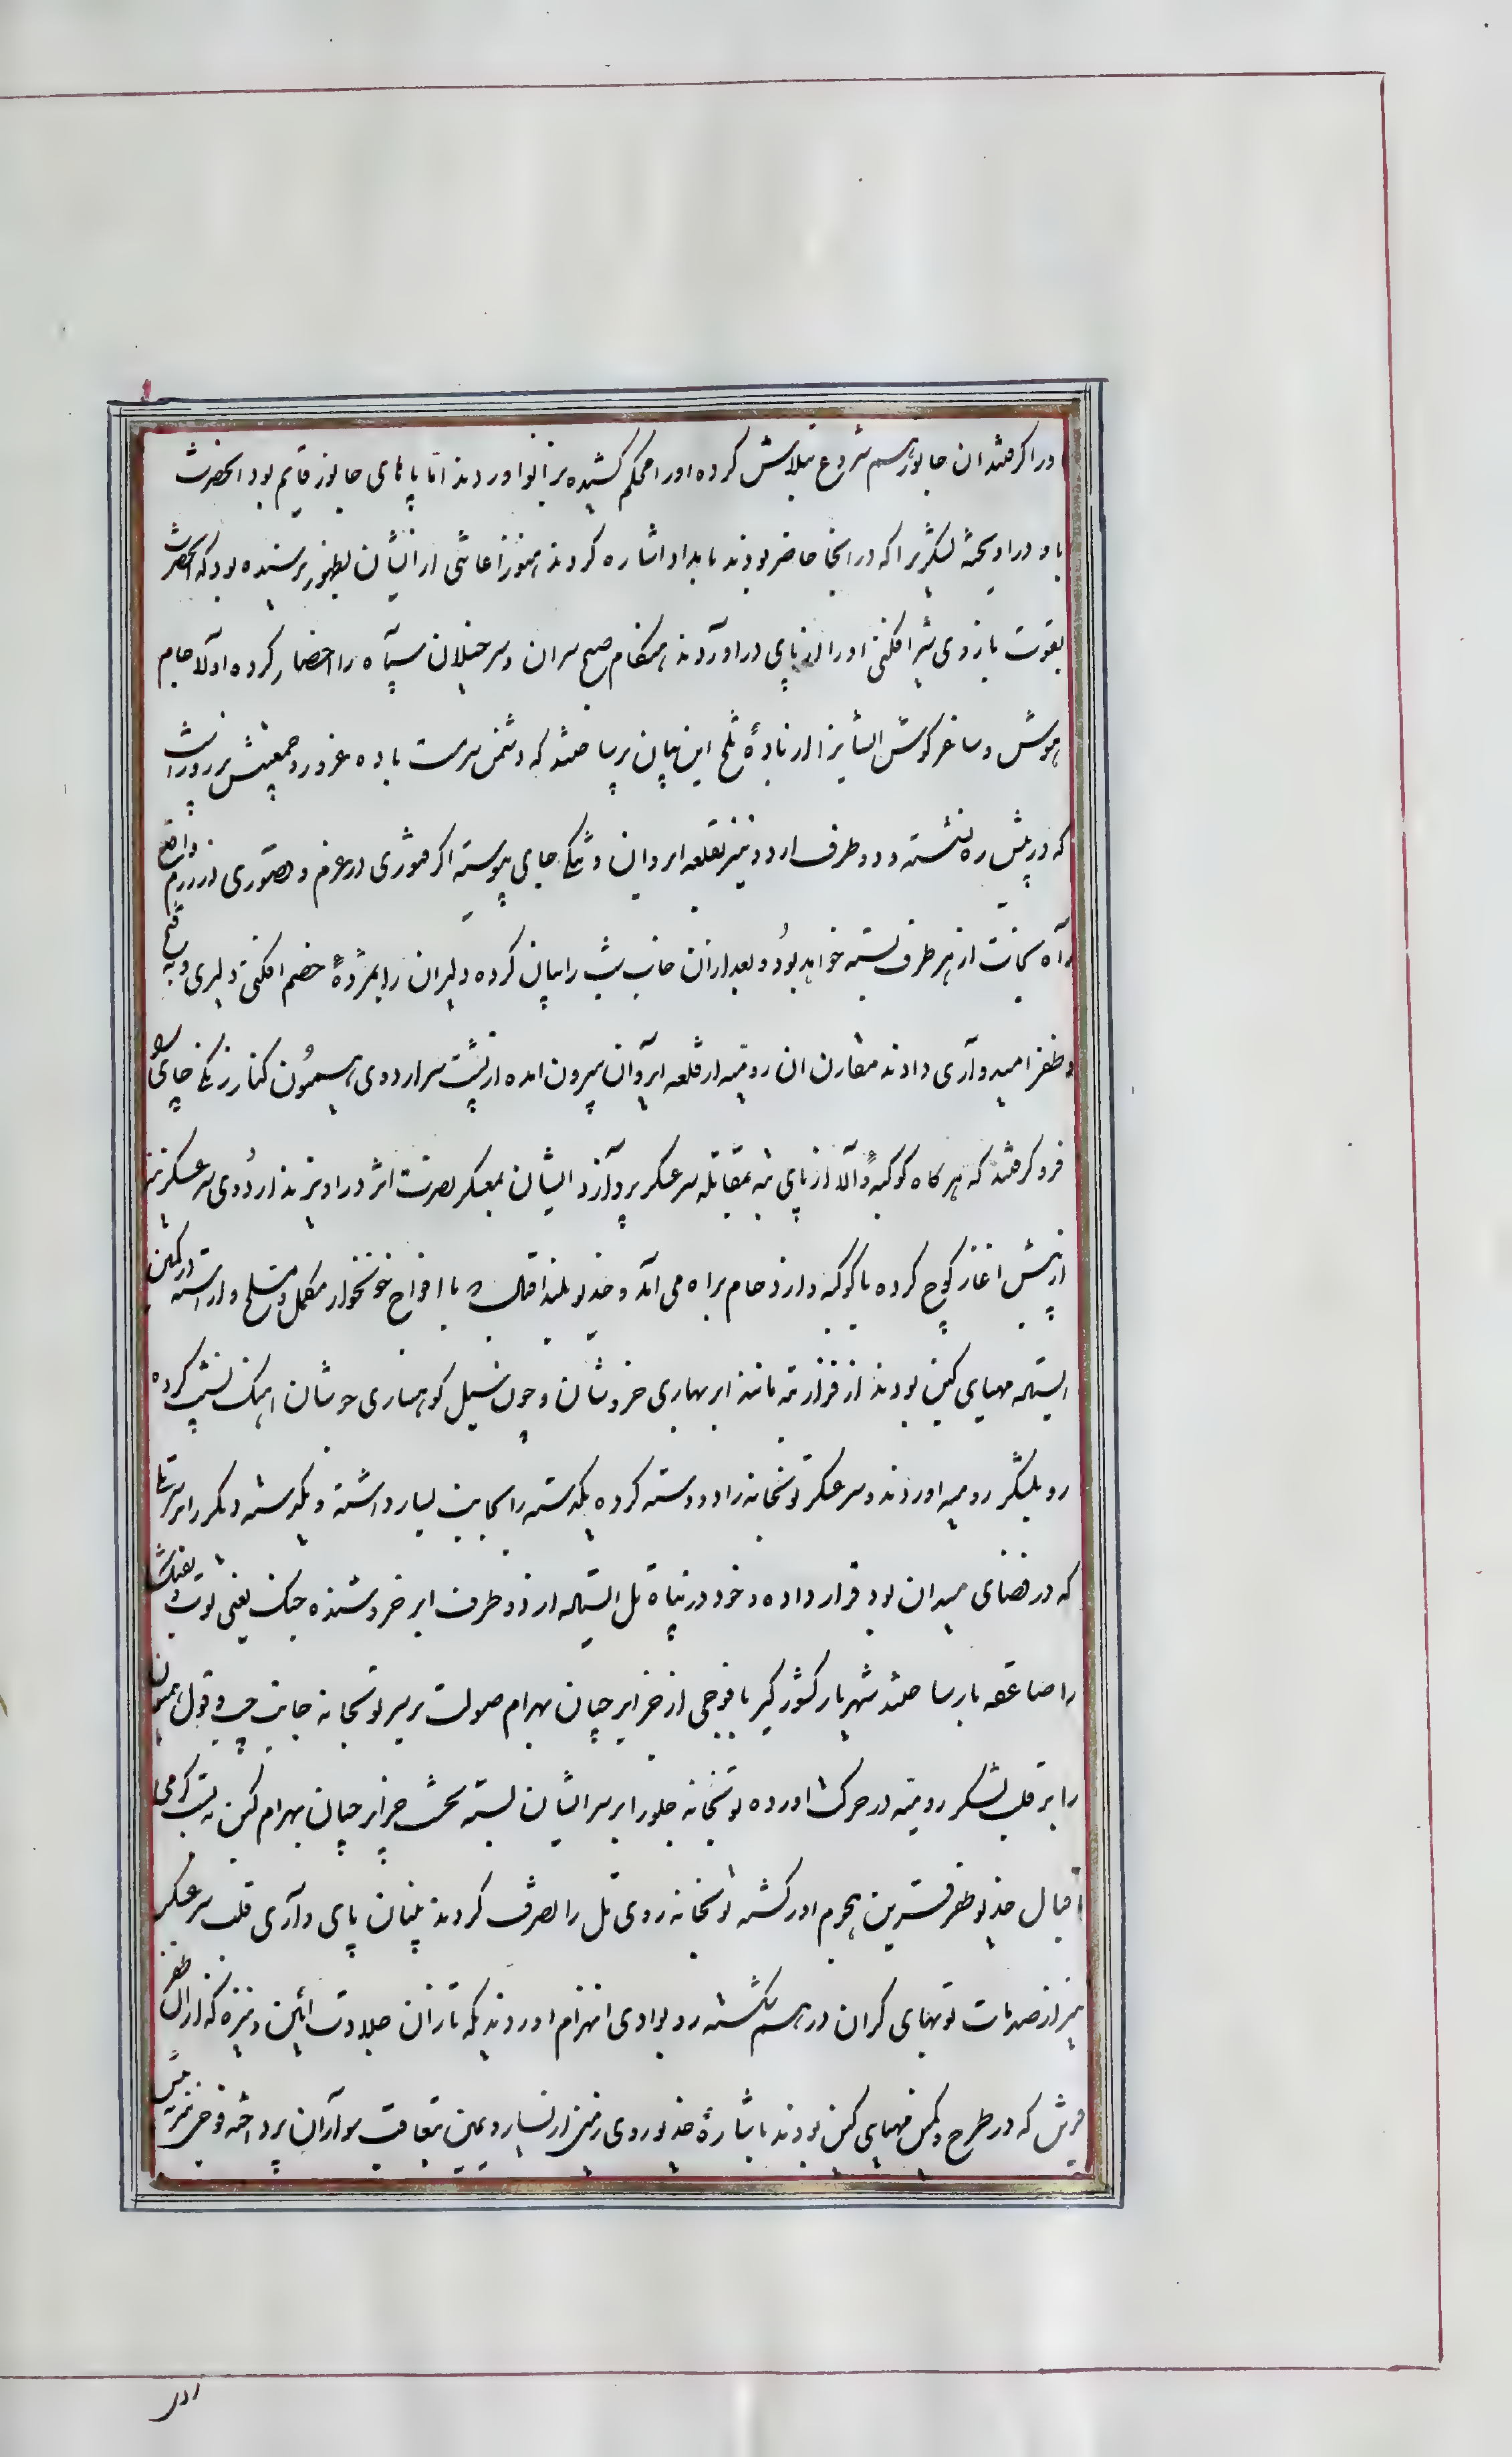 درا گرفتند ان جانور هم شروع بتلاش کرده او را محکم کشیده بزانو اوردند اما پاهای جانور قایم بود انحضرت
باو دراویخته لشکریرا که در انجا حاضر بودند بامداد اشاره کردند هنوز اعانتی از ایشان بظهور نرسیده بود که انحضرت
بقوت بازوی شیر افکنی او را از پای دراوردند هنکام صبح سران و سرخیلان سپاه را احضار کرده اولا جام
هوش و ساغر کوش ایشانرا از بادهٔ تلخ این بیان پر ساختند که دشمن سرمست باده غرور و جمعیتش پر زور است
که در پیش ره نشسته و دو طرف اردو نیز بقلعه ایروان و زنگی چای پیوسته اگر فتوری در عزم و قصوری در رزم واقع
راه نجات از هر طرف بسته خواهد بود و بعد ازان خاب شب را بیان کرده دلیران را بمژدهٔ خصم افکنی دلیری و به فتح
و ظفر امیدواری دادند مقارن ان رومیه از قلعه ایروان بیرون امده از پشت سر اردوی همیون کنار زنگی چای
فرو گرفتند که هرگاه کوکبهٔ والا از پای تپه بمقابله سرعسکر پردازد ایشان بمعسکر نصرت اثر دراویزند اردوی سرعسکر نیز
از پیش اغاز کوچ کرده با کوکبه و ازدحام براه می امد و خدیو بلند اقبال با افواج خونخوار مکمل و مسلح و اراسته در کمین
ایستاده مهیای کین بودند از فراز تپه مانند ابر بهاری خروشان و چون سیل کوهساری جوشان اهنک نشیب کرده
رو بلشکر رومیه اوردند و سرعسکر توپخانه را دو دسته کرده یکدسته را بجانب یسار داشته و یکدسته دیکر را بر سر تل
که در فضای میدان بود قرار داده و خود در پناه تل ایستاده از دو طرف ابر خروشنده جنک یعنی توپ و تفنک
را صاعقه بار ساختند شهریار کشور گیر با فوجی از جزایرچیان بهرام صولت بر سر توپخانه جانب چپ و قول همیون
را بر قلب لشکر رومیه در حرکت اورده توپخانه جلو را بر سر ایشان بسته نخست جزایرچیان بهرام کین به نسبت گرمی
اقبال خدیو ظفر قرین هجوم اور کشته توپخانه روی تل را تصرف کردند بنیان پای داری قلب سرعسکر
نیز از صدمات توپهای گران درهم شکسته رو بوادی انهزام اوردند یکه تازان جلادت ائین و نیزه گذاران ظفر
قرین که در طرح و کمین مهیای کین بودند باشارهٔ خدیو روی زمین از یسار و یمین بتعاقب سواران پرداخته فوجی نیز به